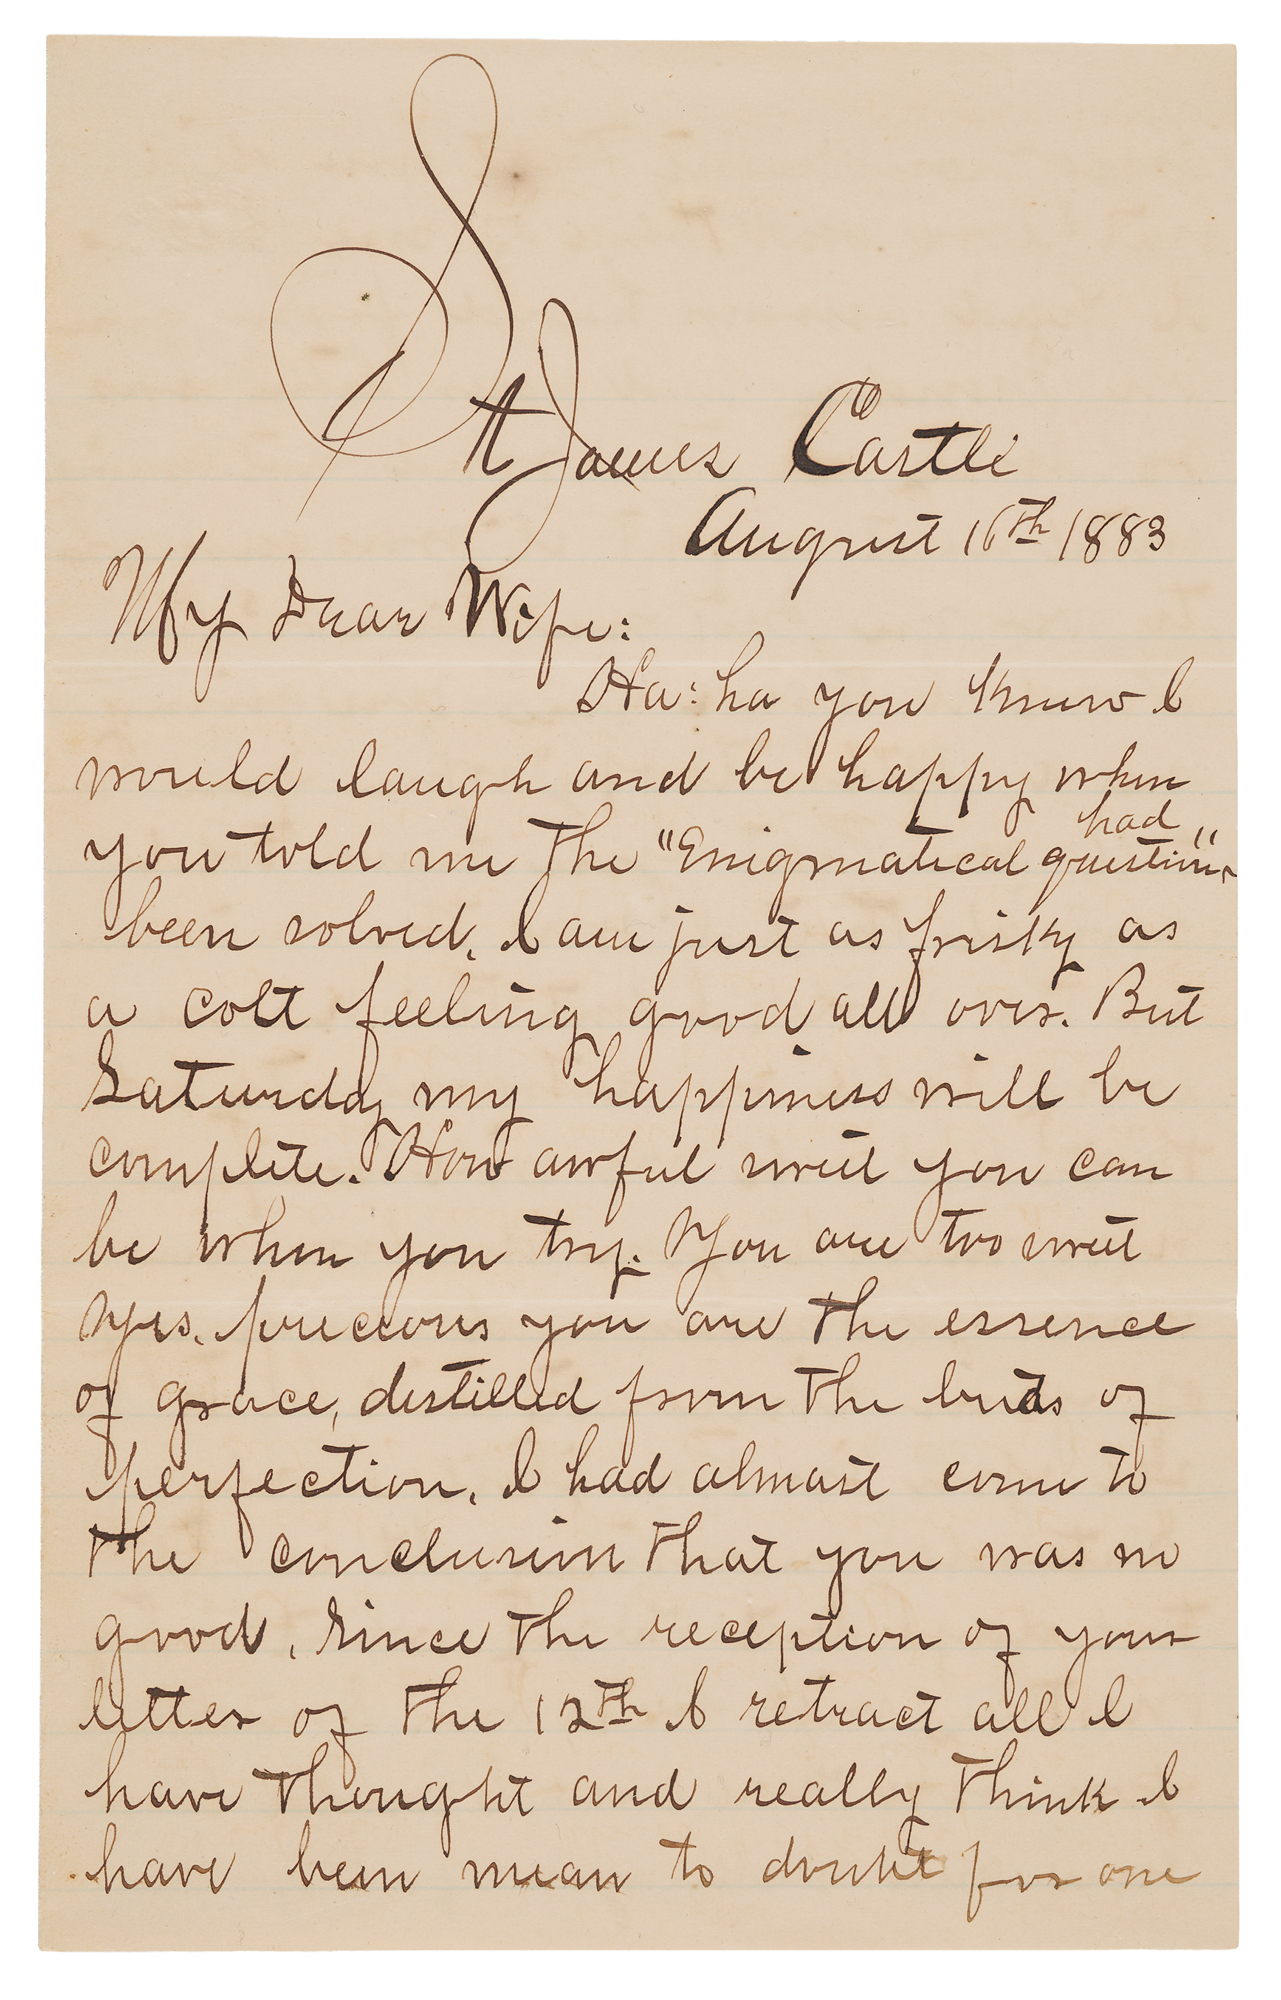 St James Castle
August 16th 1883
My Dear Wife:
Ha: ha you knew I
would laugh and be happy when
had
you told me the "Enigmatical question"
been solved, I am just as frisky as
a colt feeling good all over. But
Saturday my happiness will be
complete. How awful sweet you can
be when you try. You are too sweet
Yes. precious you are the essence
of grace, distilled from the buds of
perfection, I had almost come to
the conclusion that you was no
good, Since the reception of your
letter of the 12th I retract all I
have thought and really think I
have been mean to doubt for one